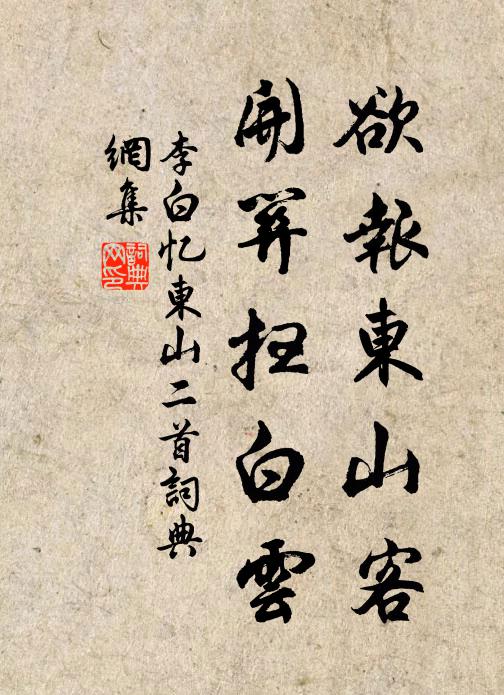 欲報東山客
開關掃白雲
李白忆東山二首詞典
網集
詞典
网印